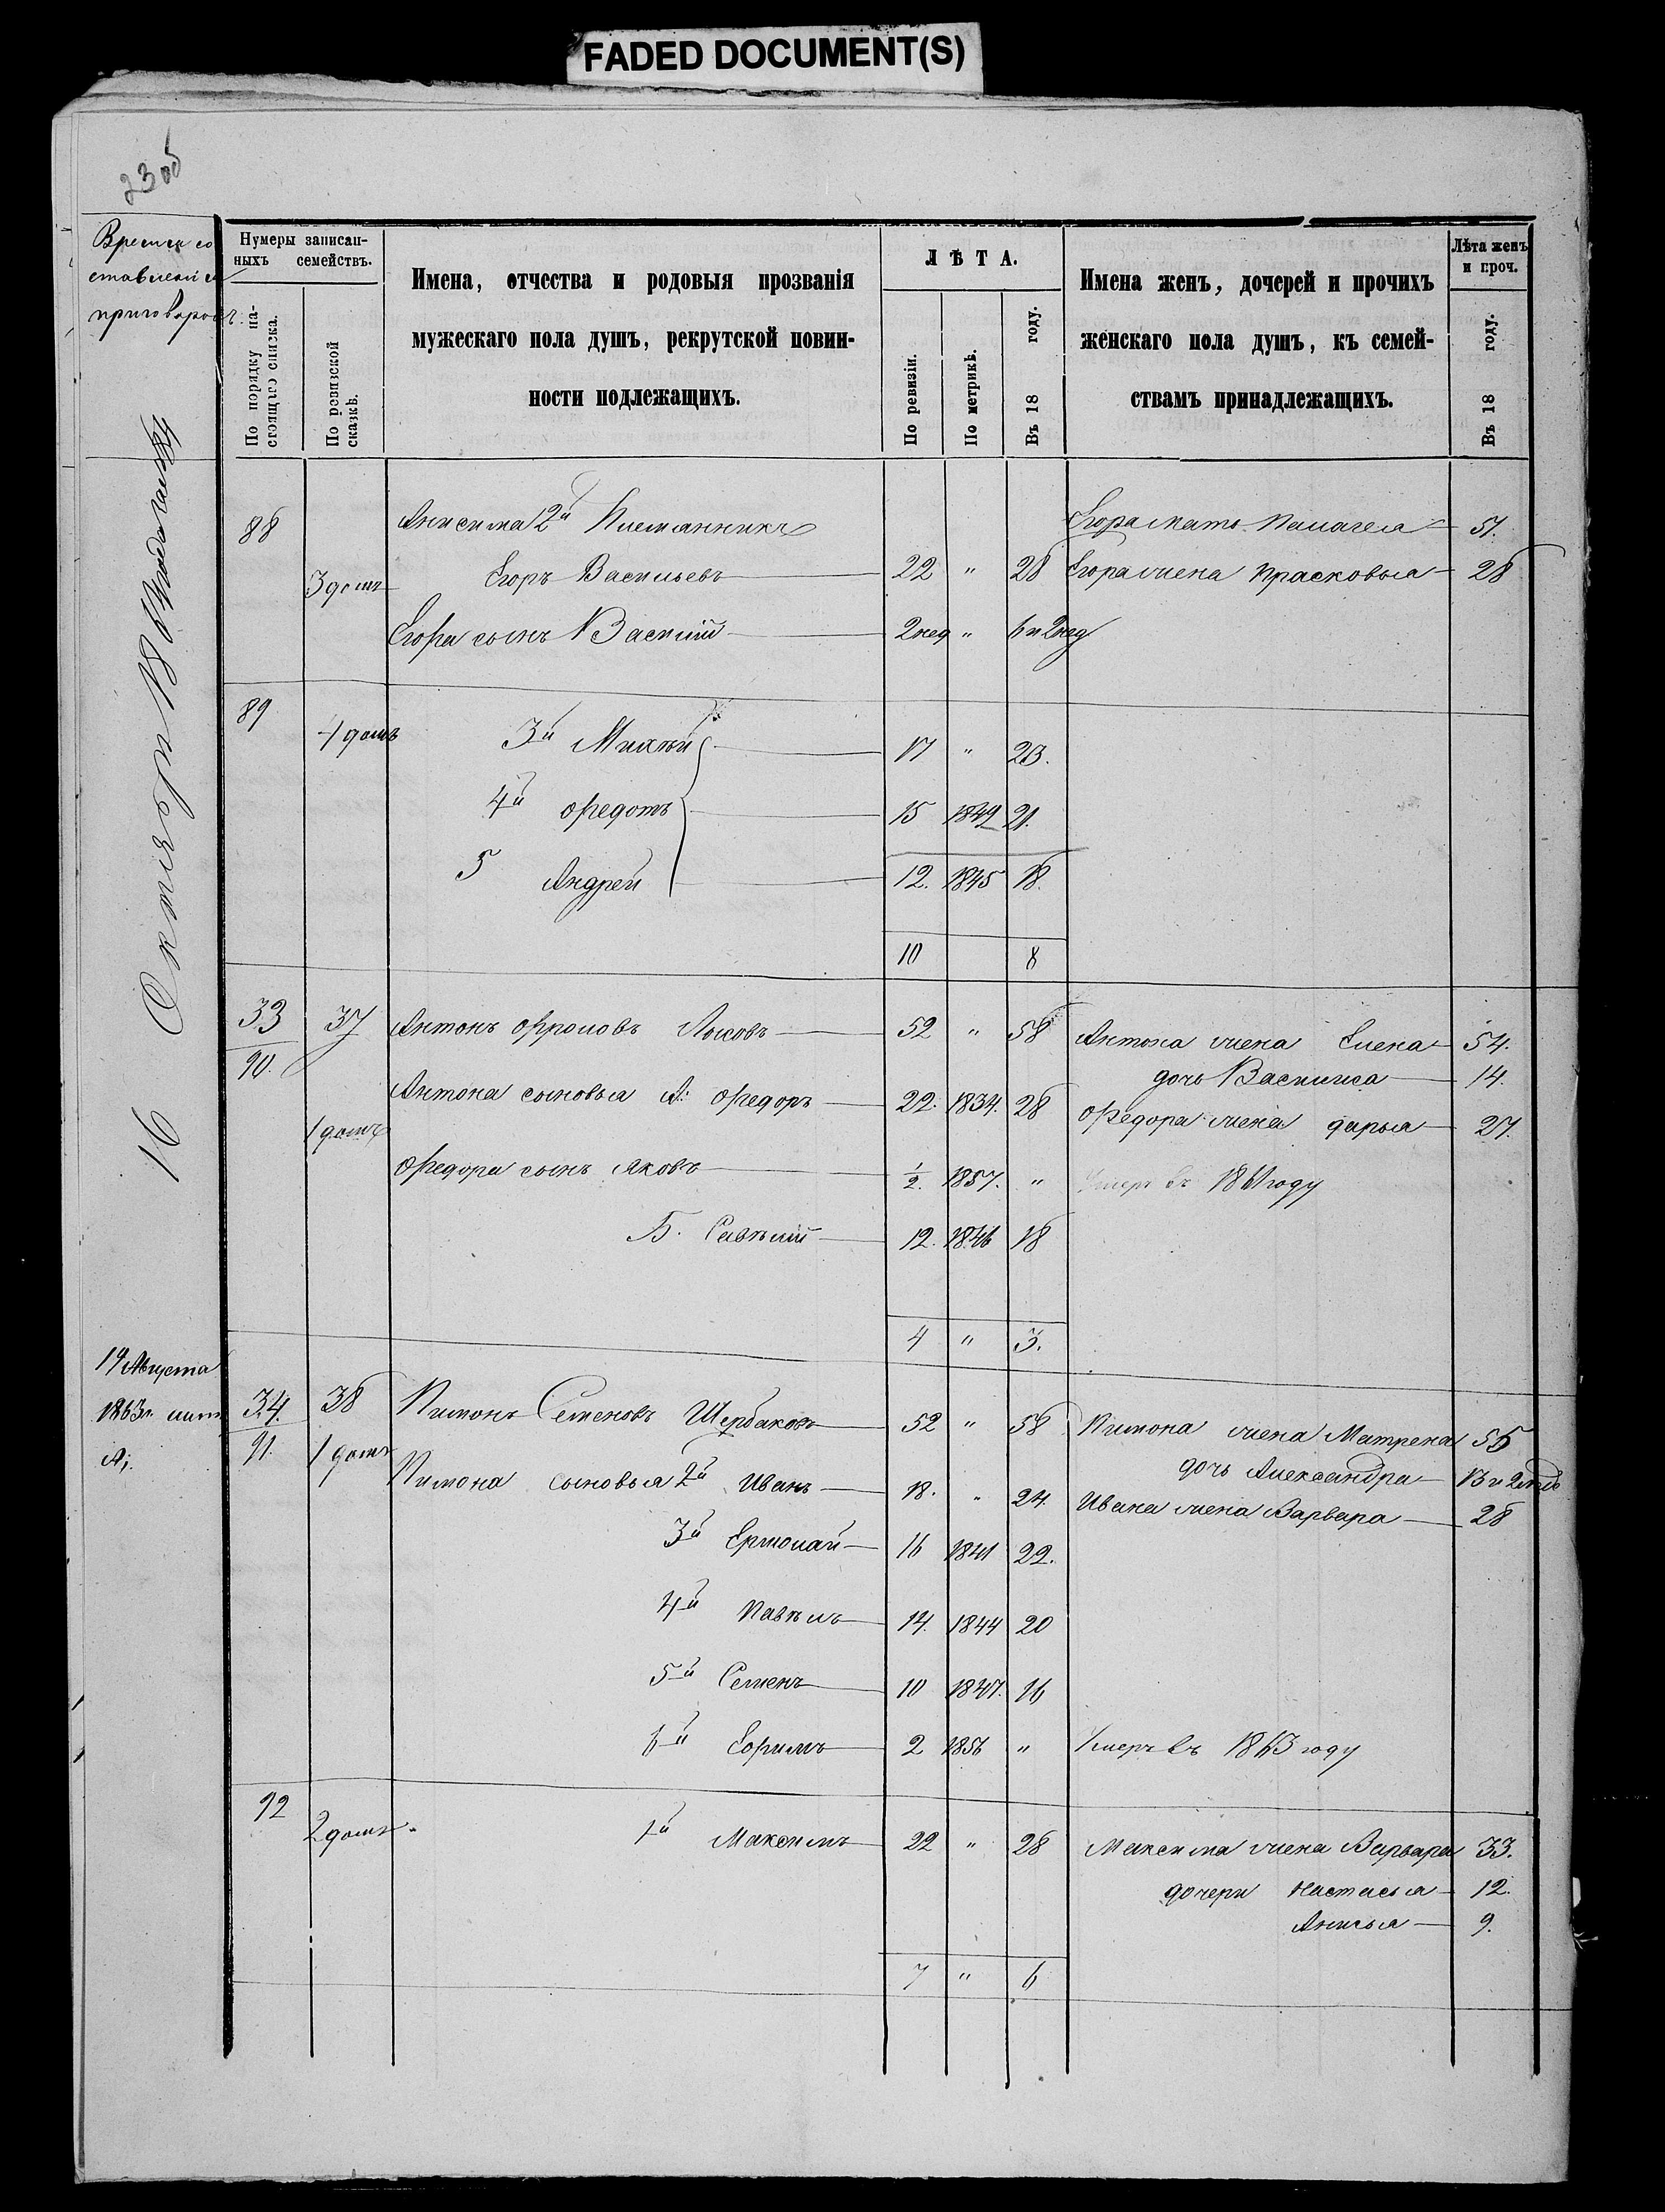 FADED DOCUMENT(S)
23 об
Время со
ставленія
приговоровъ
Нумеры записан-
ныхъ семействъ.
По порядку на-
стоящаго списка.
По ревизской
сказкѣ.
Имена, отчества и родовыя прозванія
мужескаго пола душъ, рекрутской повин-
ности подлежащихъ.
ЛѢТА.
По ревизіи.
По метрикѣ.
Въ 18 году.
Имена женъ, дочерей и прочихъ
женскаго пола душъ, къ семей-
ствамъ принадлежащихъ.
Лѣта женъ
и проч.
Въ 18 году.
16 Октября 1864 года
88 Анисима 2й Племянникъ Егора мать Палагея 51.
3 домъ Егоръ Васильевъ 22 " 28 Егора жена Прасковья 28
Егора сынъ Василій 2 нед " 6 и 2 нед
89 4 домъ 3й Михѣй 17 " 23.
4й Федотъ 15 1842 21.
5 Андрей 12. 1845 18.
10 8
33 37 Антонъ Фроловъ Лысовъ 52 " 58 Антона жена Елена 54.
90. дочь Василиса 14.
Антона сыновья А: Федоръ 22. 1834. 28 Федора жена Дарья 27.
1 домъ
Федора сынъ Яковъ 1/2. 1857. " Умеръ въ 1861 году
Б. Савѣлій 12. 1846 18
4 " 3.
19 Августа
1863 г. лит
А;
34. 38 Пимонъ Семеновъ Щербаковъ 52 " 58 Пимона жена Матрена 55
91. 1 домъ дочь Александра 13 и 2 нед
Пимона сыновья 2й Иванъ 18. " 24. Ивана жена Варвара 28
3й Ермолай 16 1841 22.
4й Павѣлъ 14. 1844 20
5й Семенъ 10 1847. 16
6й Ефимъ 2 1856 " Умеръ въ 1863 году
92 2 домъ. 1й Максимъ 22 " 28 Максима жена Варвара 33.
дочери Настасья 12.
Анисья 9.
7 " 6